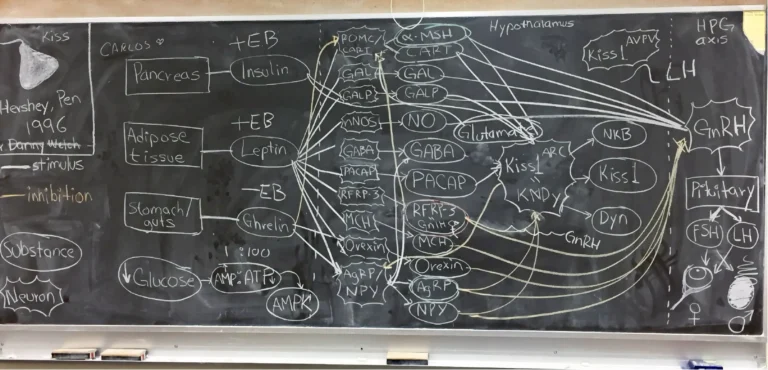 Kiss
Hershey, Pen
1996
Danny Welch
stimulus
inhibition
Substance
Neuron
CARLOS ♥
+EB
Pancreas
Insulin
+EB
Adipose
tissue
Leptin
-EB
Stomach/
guts
Ghrelin
1:100
↓Glucose
AMP:ATP↓
AMPK
POMC/
CART
GAL
GALP
nNOS
GABA
PACAP
RFRP-3
MCH
Orexin
AgRP
NPY
α-MSH
CART
GAL
GALP
NO
GABA
PACAP
RFRP-3
GnIH
MCH
Orexin
AgRP
NPY
Hypothalamus
Glutamate
Kiss1 ARC
KNDy
GnRH
Kiss1 AVPV
LH
NKB
Kiss1
Dyn
HPG
axis
GnRH
Pituitary
FSH
LH
♀
♂